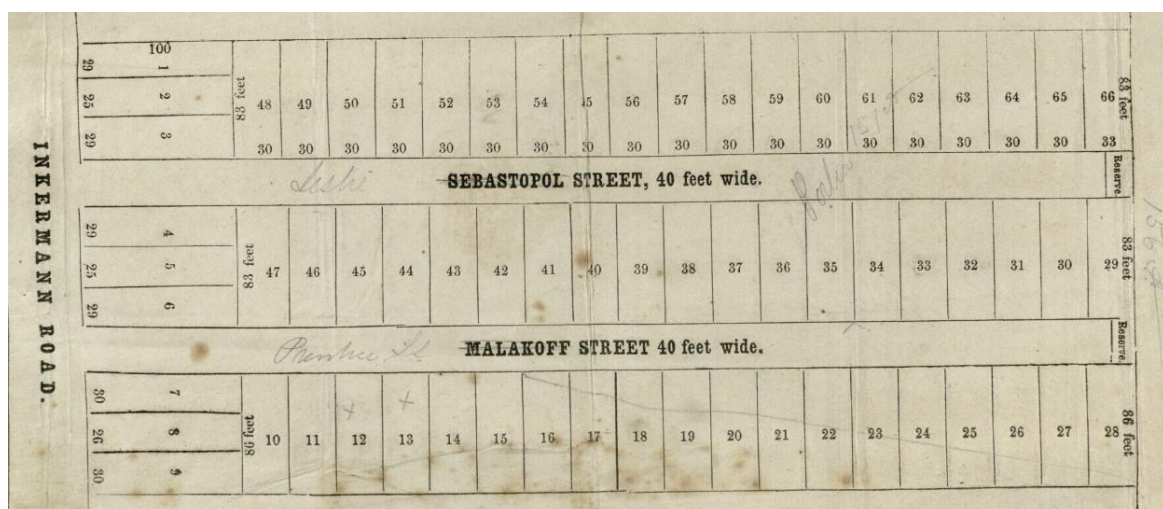 INKERMANN ROAD.
100
29 1
25 2
29 3
83 feet 48 49 50 51 52 53 54 55 56 57 58 59 60 61 62 63 64 65 66 83 feet
30 30 30 30 30 30 30 30 30 30 30 30 30 30 30 30 30 30 33
Leslie SEBASTOPOL STREET, 40 feet wide. Reserve.
29 4
25 5
29 6
83 feet 47 46 45 44 43 42 41 40 39 38 37 36 35 34 33 32 31 30 29 83 feet
MALAKOFF STREET 40 feet wide. Reserve.
30 7
26 8
30 9
86 feet 10 11 12 13 14 15 16 17 18 19 20 21 22 23 24 25 26 27 28 86 feet